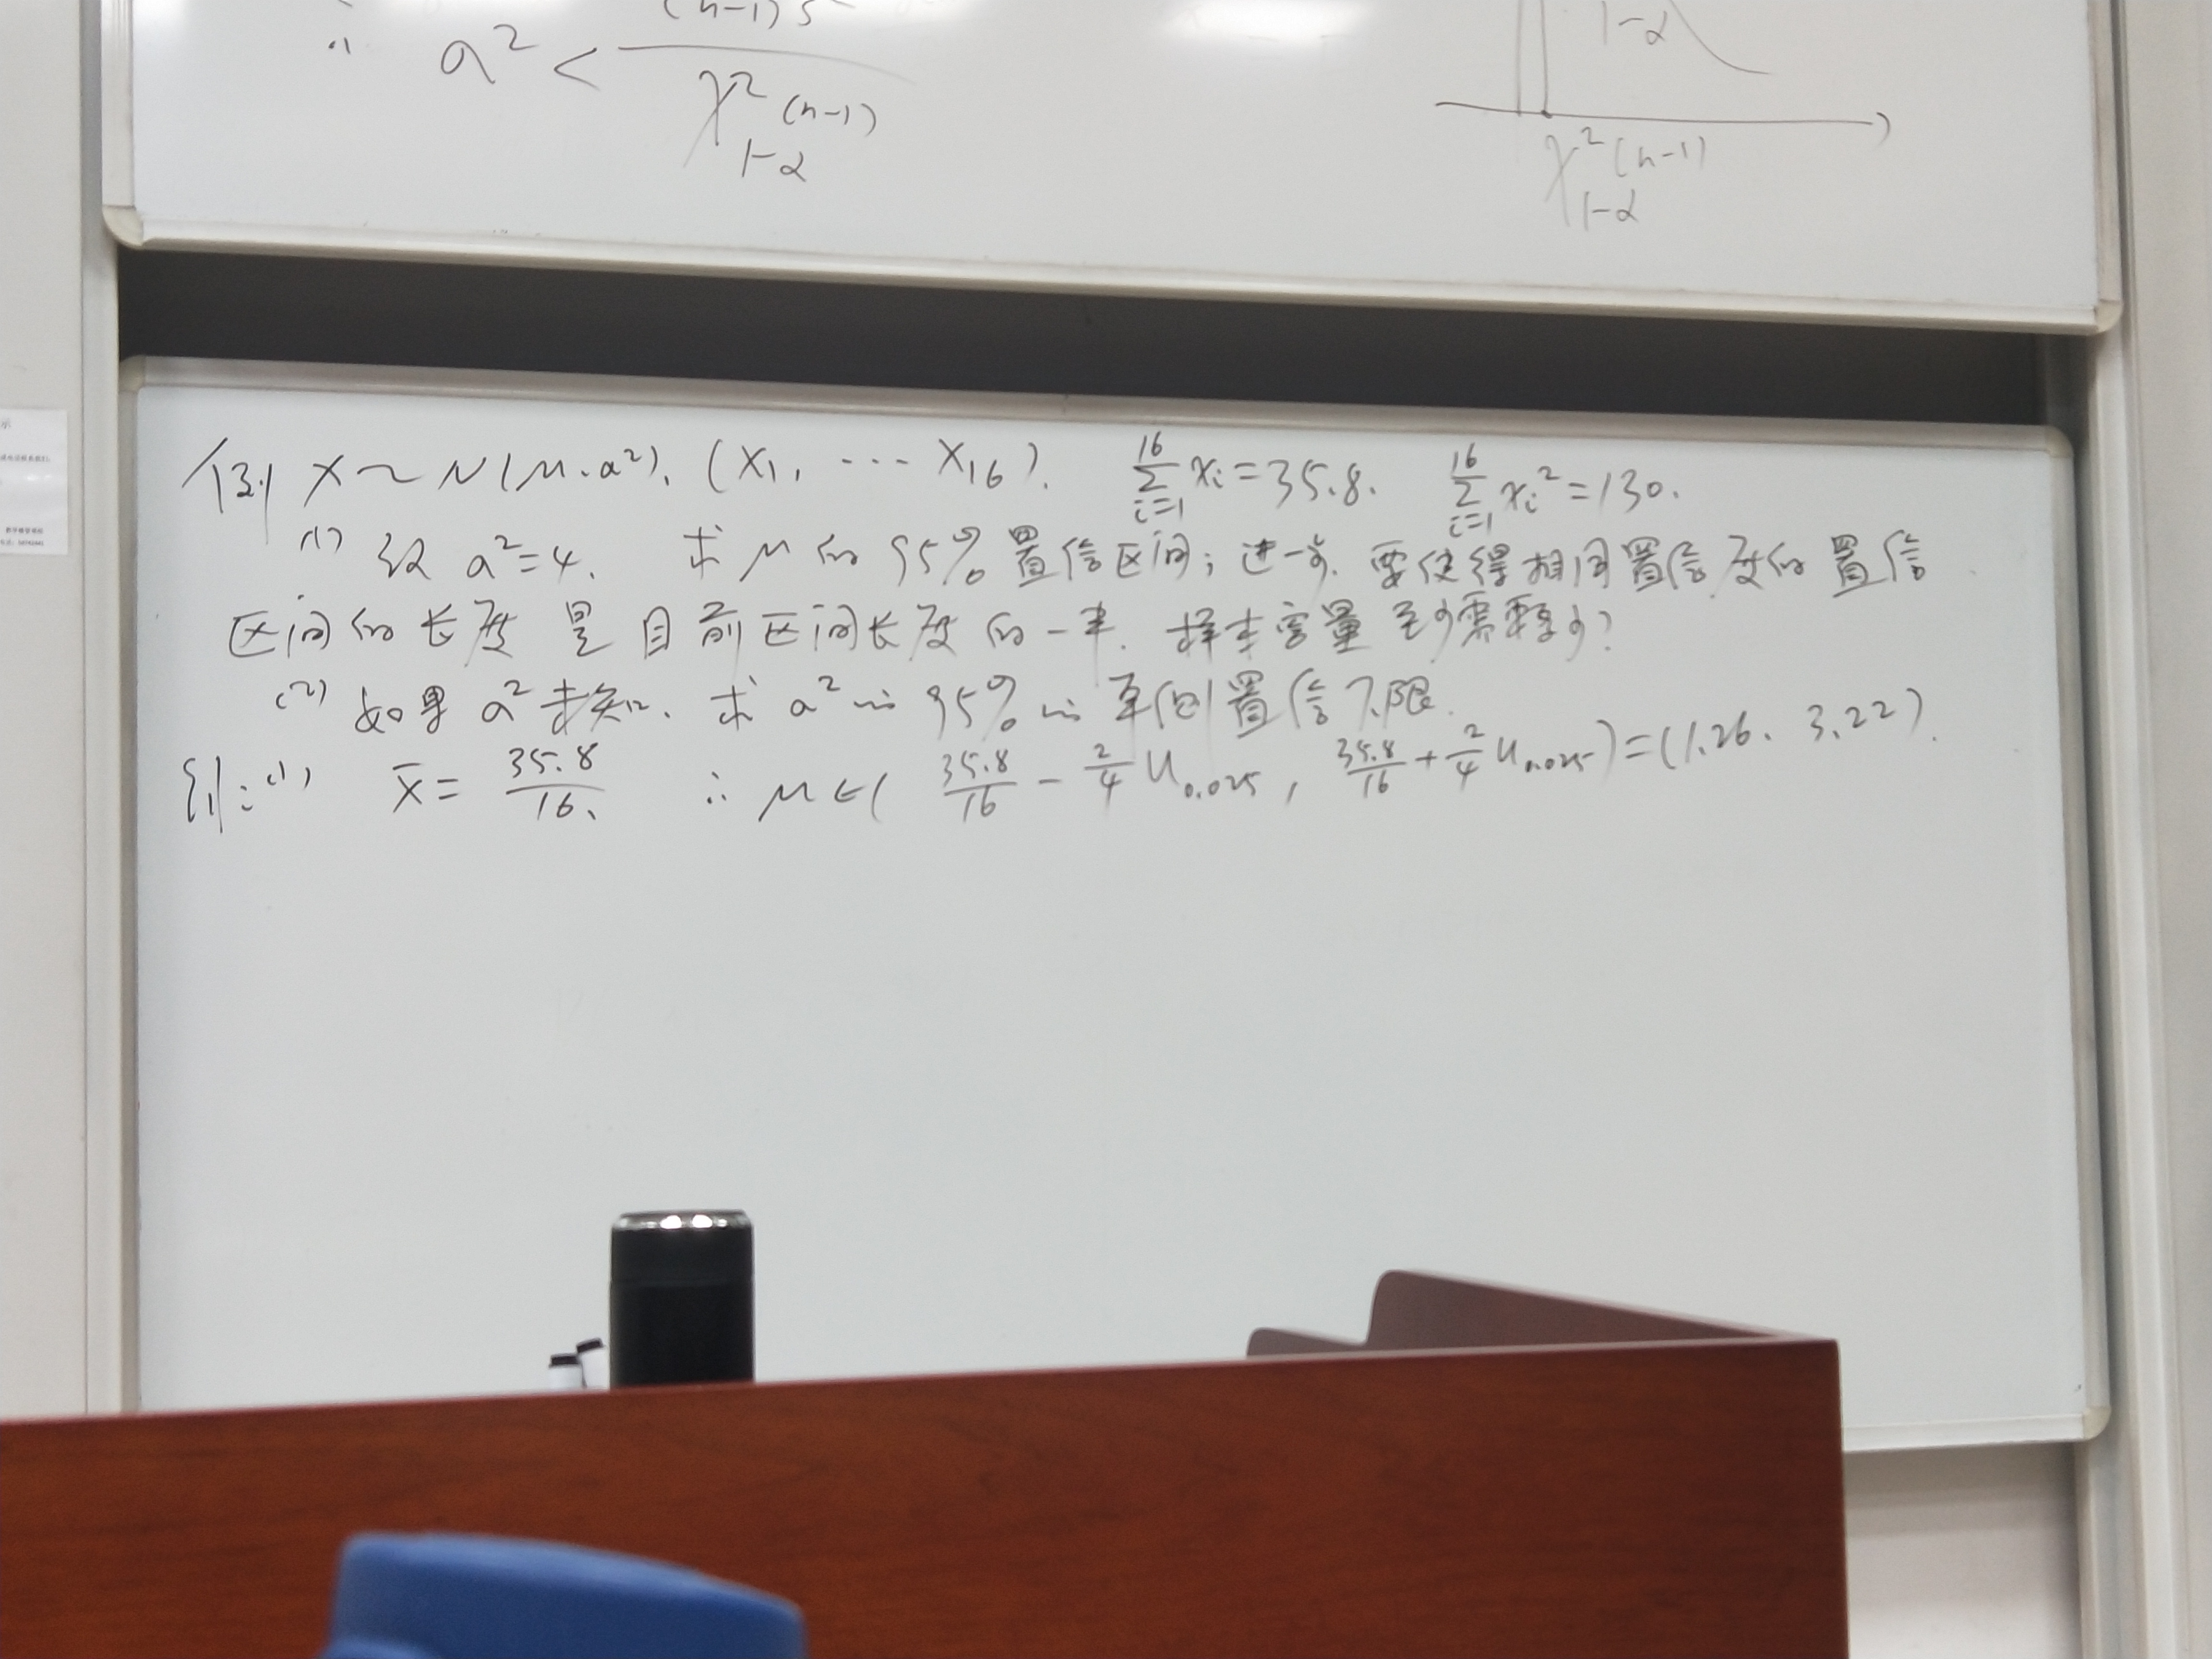 ∴ a² < (n-1)S / χ²₁₋α(n-1)
1-α
χ²₁₋α(n-1)
例 X~N(μ.a²). (X₁, ⋯ X₁₆). ∑ᵢ₌₁¹⁶ xᵢ=35.8. ∑ᵢ₌₁¹⁶ xᵢ²=130.
(1) 设 a²=4. 求 μ的 95%置信区间; 进一步. 要使得相同置信度的置信
区间的长度是目前区间长度的一半. 样本容量至少需要多少?
(2) 如果 a²未知. 求 a²的 95%的单侧置信下限.
(1) x̄ = 35.8/16. ∴ μ∈( 35.8/16 - 2/4 u₀.₀₂₅, 35.8/16 + 2/4 u₀.₀₂₅)=(1.26、3.22).